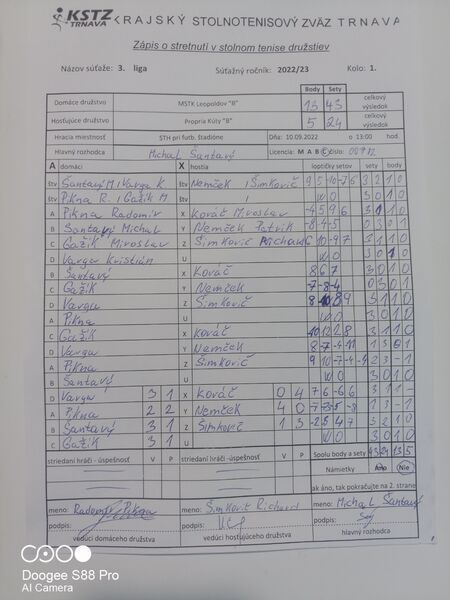 KSTZ TRNAVA KRAJSKÝ STOLNOTENISOVÝ ZVÄZ TRNAVA
Zápis o stretnutí v stolnom tenise družstiev
Názov súťaže: 3. liga Súťažný ročník: 2022/23 Kolo: 1.
Body Sety
Domáce družstvo MSTK Leopoldov "B" 13 43 celkový výsledok
Hosťujúce družstvo Propria Kúty "B" 5 24 celkový výsledok
Hracia miestnosť STH pri futb. štadióne Dňa: 10.09.2022 o 13:00 hod
Hlavný rozhodca Michal Šantavý Licencia: M A B C číslo:
A domáci X hostia loptičky setov sety body
štv Šantavý M / Varga K Nemček / Šimkovič 3 2 1 0
štv Pikna R. / Gažík M / WO 3 0 1 0
A Pikna Radomír X Kováč Miroslav -4 5 9 6 3 1 1 0
B Šantavý Michal Y Nemček Patrik -8 -4 -5 0 3 0 1
C Gažík Miroslav Z Šimkovič Richard 3 1 1 0
D Varga Kristián U WO 3 0 1 0
B Šantavý X Kováč 8 6 7 3 0 1 0
C Gažík Y Nemček -7 -8 -4 0 3 0 1
D Varga Z Šimkovič 3 1 1 0
A Pikna U WO 3 0 1 0
C Gažík X Kováč 3 1 1 0
D Varga Y Nemček 8 -7 -4 -11 1 3 0 1
A Pikna Z Šimkovič 9 10 -7 -4 -4 2 3 - 1
B Šantavý U WO 3 0 1 0
D Varga 3 1 X Kováč 0 4 7 6 -6 6 3 1 1 -
A Pikna 2 2 Y Nemček 4 0 1 3 - 1
B Šantavý 3 1 Z Šimkovič 1 3 3 2 1 0
C Gažík 3 1 U WO 3 0 1 0
striedaní hráči - úspešnosť V P striedaní hráči - úspešnosť V P Spolu body a sety 43 24 13 5
Námietky Áno Nie
ak áno, tak pokračujte na 2. strane
meno: Radomír Pikna meno: Šimkovič Richard meno: Michal Šantavý
podpis: podpis: podpis:
vedúci domáceho družstva vedúci hosťujúceho družstva hlavný rozhodca
Doogee S88 Pro
AI Camera